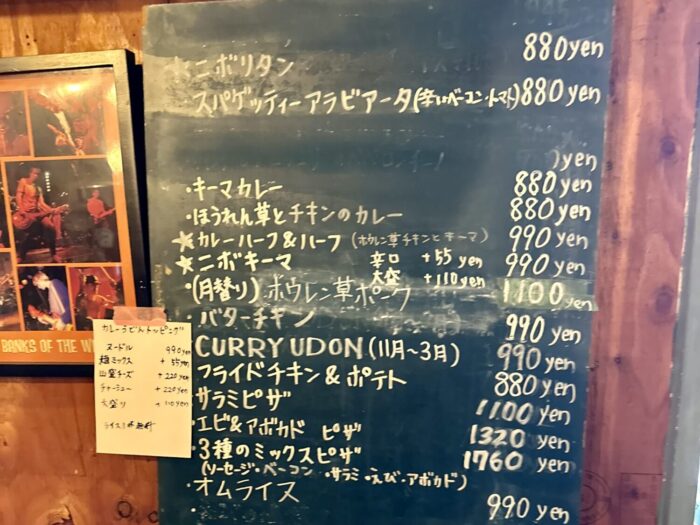 ★ニボリタン 880yen
・スパゲッティーアラビアータ(辛いベーコン・トマト) 880yen
)yen
・キーマカレー 880yen
・ほうれん草とチキンのカレー 880yen
★カレーハーフ&ハーフ (ホウレン草チキンとキーマ) 990yen
★ニボキーマ 辛口 +55yen 990yen
大盛 +110yen
・(月替り)ホウレン草ポーク 1100yen
・バターチキン 990yen
・CURRY UDON (11月〜3月) 990yen
・フライドチキン&ポテト 880yen
・サラミピザ 1100yen
・エビ&アボカド ピザ 1320yen
・3種のミックスピザ 1760yen
(ソーセージ・ベーコン・サラミ・えび・アボカド)
・オムライス 990yen
カレーうどんトッピング
ヌードル 990yen
ミックス +55yen
チーズ +220yen
チャーシュー +220yen
大盛り +110yen
BANKS OF THE